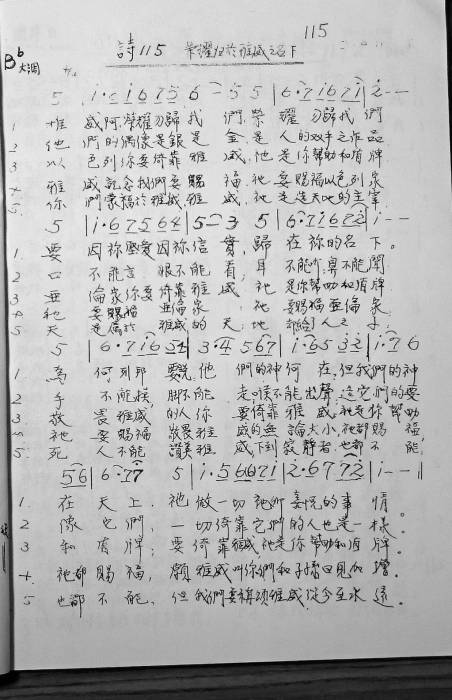 115
詩115 榮耀歸於雅威之名下
Bb大調
5 | i·c i676 5 6 - 5 5 | 6·7 i67 i | 2 - -
1 惟 威阿榮耀勿歸我 們榮 耀 勿歸我們
2 他 們的偶像是銀是 金是 人的双手之作品
3 以 色列你要倚靠雅 威,他是你幫助和盾牌
4 雅 威記念我們要賜 福,祂要賜福以色列家
5 你 們蒙福於雅威雅 威祂是造天地的主宰
5 | i·67 5 6 4 | 5 - 3 5 | 6·7 i672 | i - -
1 要 因祢慈愛因祢信 實,歸 在祢的名 下。
2 口 不能言 眼不能 看,耳 不能听鼻不能聞
3 亞 倫家你要倚靠雅 威 祂 是你幫助和盾牌
4 祂 要賜福 亞倫家 祂 要賜福亞倫家
5 天 是屬於 雅威的 天;地 都給了人之子;
5 | 6·7 i6 54 | 3·4 567 | i·65 32 | i·76
1 為 何列邦 要說他 們的神何 在,但我們的神
2 手 不能摸 脚不能 走喉不能出聲,這它們的要
3 敬 畏雅威 的人你 要倚靠雅 威,祂是你 幫助
4 祂 要賜福 敬畏雅 威的無 論大小,祂都賜 福,
5 死 人不能 讚美雅 威下到寂静者,也都不 能,
56 | 6·77 5 | i·56 67 i | 2·6 77 2 | i - - ‖
1 在 天上, 祂做一切祂所喜悦的事 情。
2 像 它們; 一切倚靠它們的人也是一 樣。
3 和 盾牌; 要倚靠雅威祂是你幫助和盾 牌。
4 祂都 賜 福, 願雅威叫你們和子孫日見加 增。
5 也都 不 能, 但我們要稱頌雅威從今至永 遠。